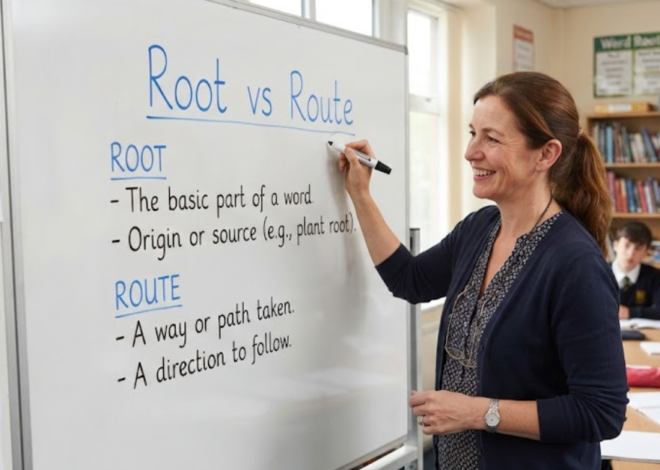 Root vs Route
ROOT
- The basic part of a word.
- Origin or source (e.g., plant root).
ROUTE
- A way or path taken.
- A direction to follow.